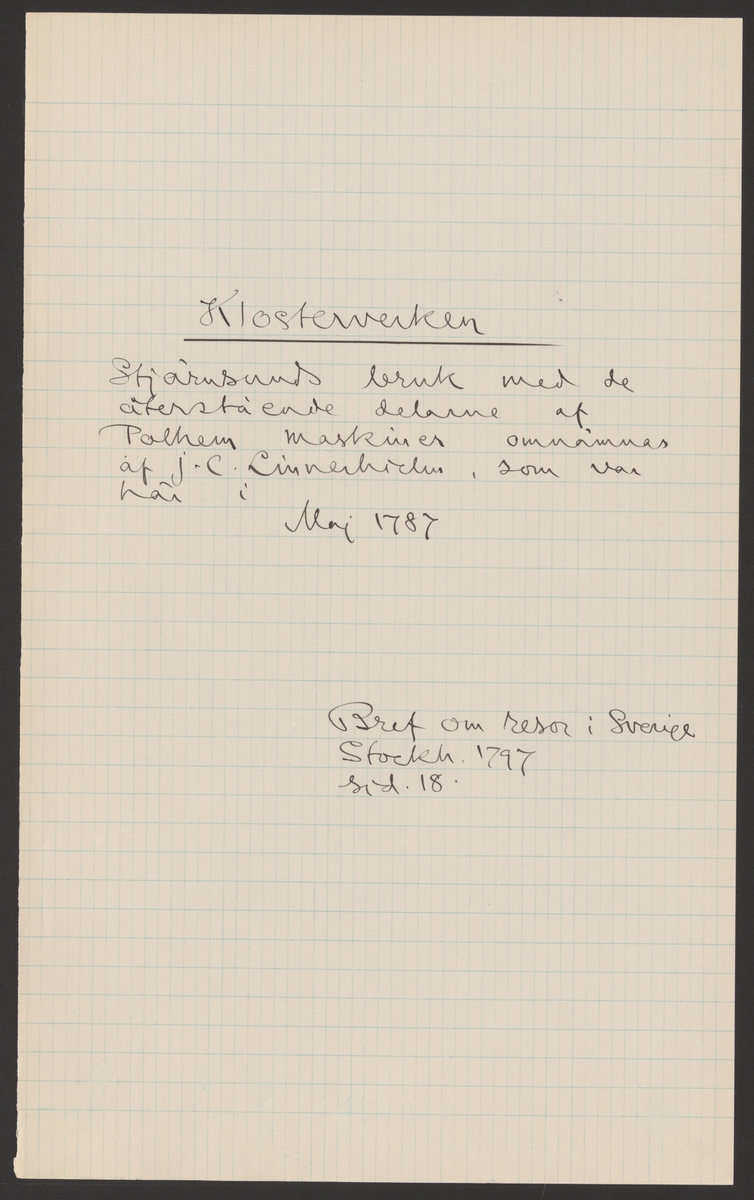 Klosterverken
Stjärnsunds bruk med de
återstående delarne af
Polhem maskiner omnämnas
af J. C. Linnerhielm, som var
här i
Maj 1787
Bref om resor i Sverige
Stockh. 1797
sid. 18.